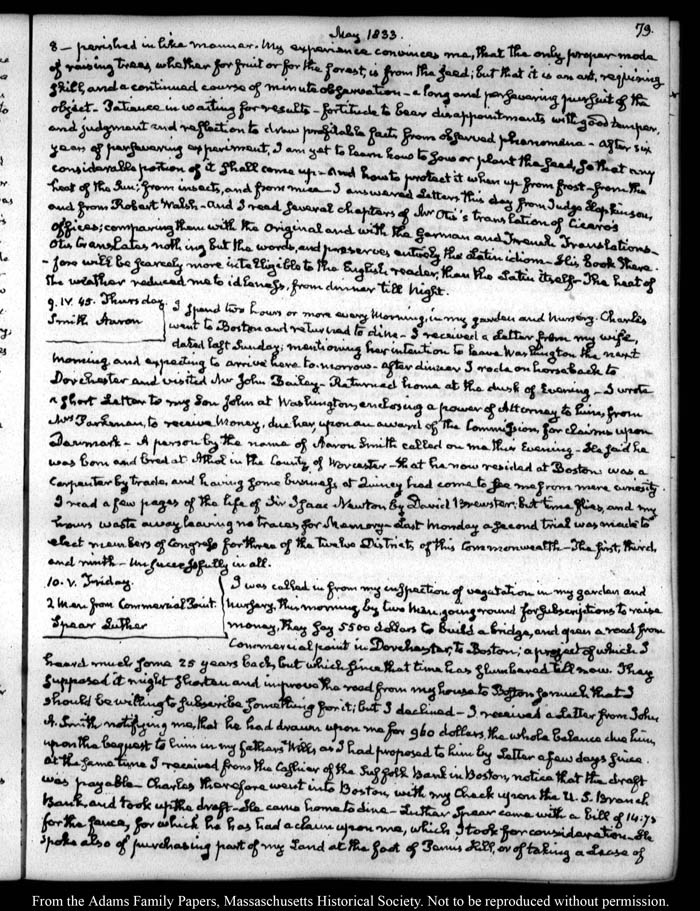 May 1833.
79.
8 — perished in like manner. My experience convinces me, that the only proper mode
of raising trees, whether for fruit or for the forest, is from the seed; but that it is an art, requiring
skill, and a continued course of minute observation — a long and persevering pursuit of the
object — Patience in waiting for results — fortitude to bear disappointments with good temper,
and judgment and reflection to draw profitable facts from observed phenomena — After six
years of persevering experiment, I am yet to learn how to sow or plant the seed, so that any
considerable portion of it shall come up — And how to protect it when up from frost — from the
heat of the Sun; from insects, and from mice — I answered Letters this day from Judge Hopkinson,
and from Robert Walsh — And I read several chapters of Mr Otis's translation of Cicero's
Offices; comparing them with the Original and with the German and French Translations —
Otis translates nothing but the words, and preserves entirely the Latin idiom — His Book there-
-fore will be scarcely more intelligible to the English reader, than the Latin itself — The heat of
the weather reduced me to idleness, from dinner till Night.
9. IV. 45. Thursday.
Smith Aaron
I spend two hours or more every Morning, in my garden and Nursery. Charles
went to Boston and returned to dine — I received a Letter from my wife,
dated last Sunday; mentioning her intention to leave Washington the next
morning and expecting to arrive here to-morrow — After dinner I rode on horseback to
Dorchester and visited Mr John Bailey — Returned home at the dusk of Evening — I wrote
a short Letter to my Son John at Washington, enclosing a power of Attorney to him, from
Mrs Parkman, to receive Money, due her, upon an award of the Commission, for claims upon
Denmark — A person by the name of Aaron Smith called on me this Evening — He said he
was born and bred at Athol in the County of Worcester — that he now resided at Boston was a
Carpenter by trade, and having some business at Quincy had come to see me from mere curiosity.
I read a few pages of the life of Sir Isaac Newton by David Brewster; but time flies, and my
hours waste away leaving no traces for Memory — Last Monday a second trial was made to
elect members of Congress for three of the twelve Districts of this Commonwealth — The first, third,
and ninth — Unsuccessfully in all.
10. V. Friday.
2 Men from Commercial Point.
Spear Luther
I was called in from my inspection of vegetation in my garden and
Nursery, this morning by two Men, going round for subscriptions to raise
money, they say 5500 dollars to build a bridge, and open a road from
Commercial point in Dorchester, to Boston; a project of which I
heard much some 25 years back, but which since that time has slumbered till now. They
supposed it might shorten and improve the road from my house to Boston so much that I
should be willing to subscribe something for it; but I declined — I received a Letter from John
A. Smith notifying me, that he had drawn upon me for 960 dollars, the whole balance due him,
upon the bequest to him in my father's Will, as I had proposed to him by Letter a few days since.
At the same time I received from the Cashier of the Suffolk Bank in Boston, notice that the draft
was payable — Charles therefore went into Boston, with my Check upon the U.S. Branch
Bank, and took up the draft — He came home to dine — Luther Spear came with a bill of 14.75
for the fence, for which he has had a claim upon me, which I took for consideration — He
spoke also of purchasing part of my Land at the foot of Penns Hill, or of taking a Lease of
From the Adams Family Papers, Massachusetts Historical Society. Not to be reproduced without permission.